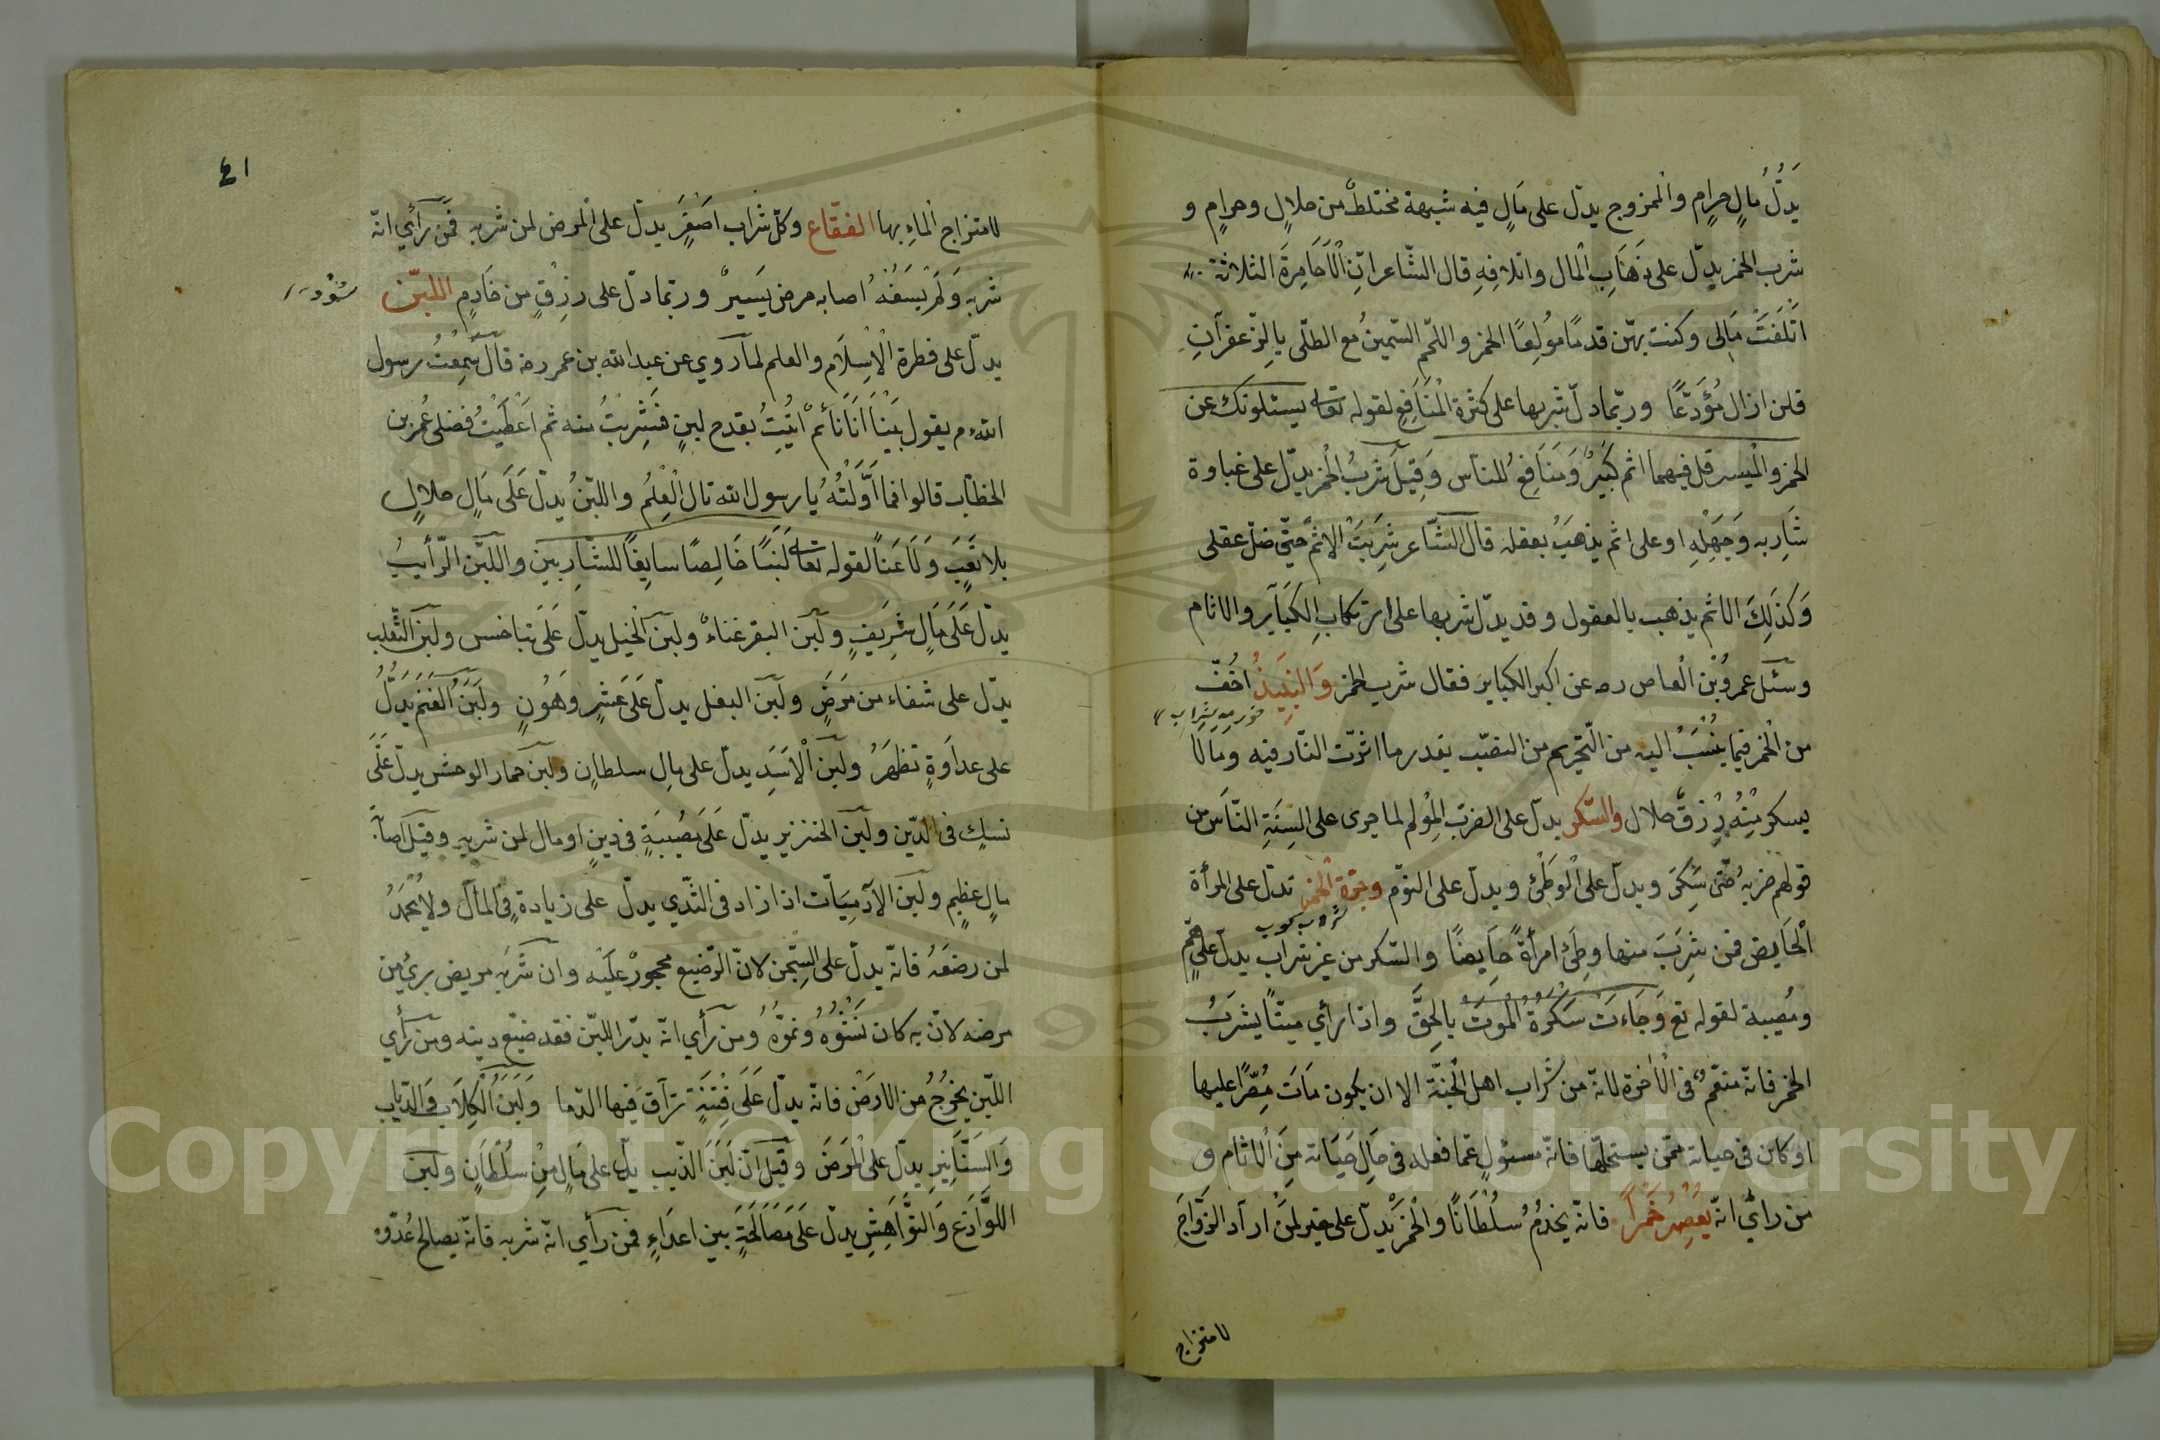 يَدُلُّ مالٍ حرامٍ والممزوج يدلّ على مَالٍ فيه شبهة مختلط من حلالٍ وحرامٍ و
شرب الخمر يدلّ على ذهَابِ الْمال واتلافِهِ قال الشّاعر انّ الْاَحَامِرَةَ الثلاثة
اتْلَفَتْ مَالى وكنت بهّن قدمًا مُولِعًا الخمر واللّحم السّمينُ مع الطّلى بالزّعفرانِ
فلن ازال مُوَدَّعًا وربّما دلّ شربها على كثرة الْمنَافع لقوله تعالى يسئلونك عن
الخمر والْميسر قل فيهما اثم كبيرٌ وَمنَافعُ للناس وَقِيلَ شربُ الْخمر يدلّ على غباوة
شَاربه وَجَهْلِهِ او على اثم يذهبُ بعقله قال الشّاعر شَرِبْتُ الْاِثْمَ حتّى ضلّ عقلى
وَكذَلِكَ الاثم يذهب بالعقول وقد يدلّ شربها على ارتكاب الكبَآير والاثام
وسئل عمروُ بْن الْعاص رضه عن اكبر الكباير فقال شرب الخمر وَالنَّبِيذُ اخفّ
خورمه شراب
من الْخمر فيما يُنْسَبُ اليه من التّحريم من النصّب بقدر ما اثرّت النّار فيه ومَالَا
يسكر مِنْهُ رزقٌ حلال والسّكر يدلّ على الضرب الْمؤلم لما جرى على السِنَةِ النّاس من
قولهم ضربهُ حتّى سَكِرَ ويدلّ على الْوطْئ ويدلّ على النوّم وجرّة الْخمر تدلّ على المرأة
الْحَايض فمن شرِبَ منها وطِئَ امرأةً حَايضًا والسّكر من غير شراب يدلّ على همّ
ومُصيبة لقوله تع وَجَاءتْ سَكْرَةُ الْموتِ بِالْحَقِّ واذا رأى ميّتًا يشربُ
الخمر فانّه منعّمٌ فى الْاخرة لانّه من شراب اهل الْجنّة الا ان يكون مَاتَ مُصِرًّا عليها
او كان فى حياته ممّن يستحلّها فانّه مسئولٍ عمّا فعله فى حَالِ حَيَاته مِنَ الْاثام و
من رأى انّه يعْصِرُ خَمْرًا فانّه يخدمُ سُلْطانًا والْخمرُ يدلّ على خير لمنْ اراد الزوَّاجَ
لامتزاج
٤١
لامتزاج الْماءِ بها الفقّاع وكلّ شراب اصْفَرَ يدلّ على الْمرض لمن شربه فَمن رآى انّه
شربه وَلَمْ يَسَعْهُ اصابه مرض يَسيرٌ وربّما دلّ على رزقٍ من خَادمٍ اللبّن
يدلّ على فطرة الْاِسْلَام والعلم لما روي عن عبد الله بن عمر رضه قال سمِعْتُ رسول
اللهم يقول بَيْنَا اَنَا نَائمٌ اُتِيتُ بقدح لبنٍ فَشَرِبْتُ منه ثم اعْطَيْتُ فضلى عُمر بن
الخطّاب قالوا فما اَوَّلْتَهُ يا رسول الله قال الْعِلْمُ واللبّنُ يدلّ عَلَى مَالٍ حلالٍ
بلا تعَبَ وَلَا عَناً لقوله تعالى لَبَنًا خَالِصًا سايغاً للشّاربين واللبّن الرّايبُ
يدلّ عَلَى مَالٍ شريفٍ ولبن البقر غناءٌ ولبن الخيل يدلّ عَلَى تباخس ولبن الثّعلب
يدلّ على شفاء من مَرَضٍ ولبن البغل يدلّ عَلَى عسْرٍ وَهَوُنٍ ولبَنُ الغَنَم يَدُلُّ
على عداوَةٍ تظهَرُ ولبن الْاسَدِ يدلّ على مالِ سلطانٍ ولبن حمار الوحش يدلّ عَلَى
نسكٍ فى الدّين ولبن الخنزير يدلّ عَلَى مصُيبَةٍ فى دينٍ او مال لمن شربه وقيل اصابة
مالٍ عظِيمٍ ولبن الآدميّات اذا زاد فى الثّدي يدلّ على زيادةٍ فى الْمال ولا يُحْمَدُ
لمن رضعَهُ فانّه يدلّ على السّجن لانّ الرّضيع محجورٌ علَيْه وان شربه مريض برئ من
مرضه لانّ به كان نشوُّهُ ونموّهُ ومن رأى انّه بدّر اللبّن فقد ضيّع دينه ومن رأي
اللبّن يخرُجُ من الارَضْ فانّه يدلّ عَلَى فِتْنَةٍ تراقَ فيها الدّما وَلَبَنُ الْكِلَاب وَالذّيَاب
وَالسّنَّانِيرِ يدلّ على الْمَرَضَ وقيل انّ لبَنَ الذّيب يدلّ على مَالٍ مِنْ سُلْطانٍ ولبن
اللوَّادَغ وَالنوَّاهَشِ يدلّ عَلَى مصَالَحَةٍ بين اعداءٍ فمن رأى انّه شربه فانّه يصالح عُدّوه